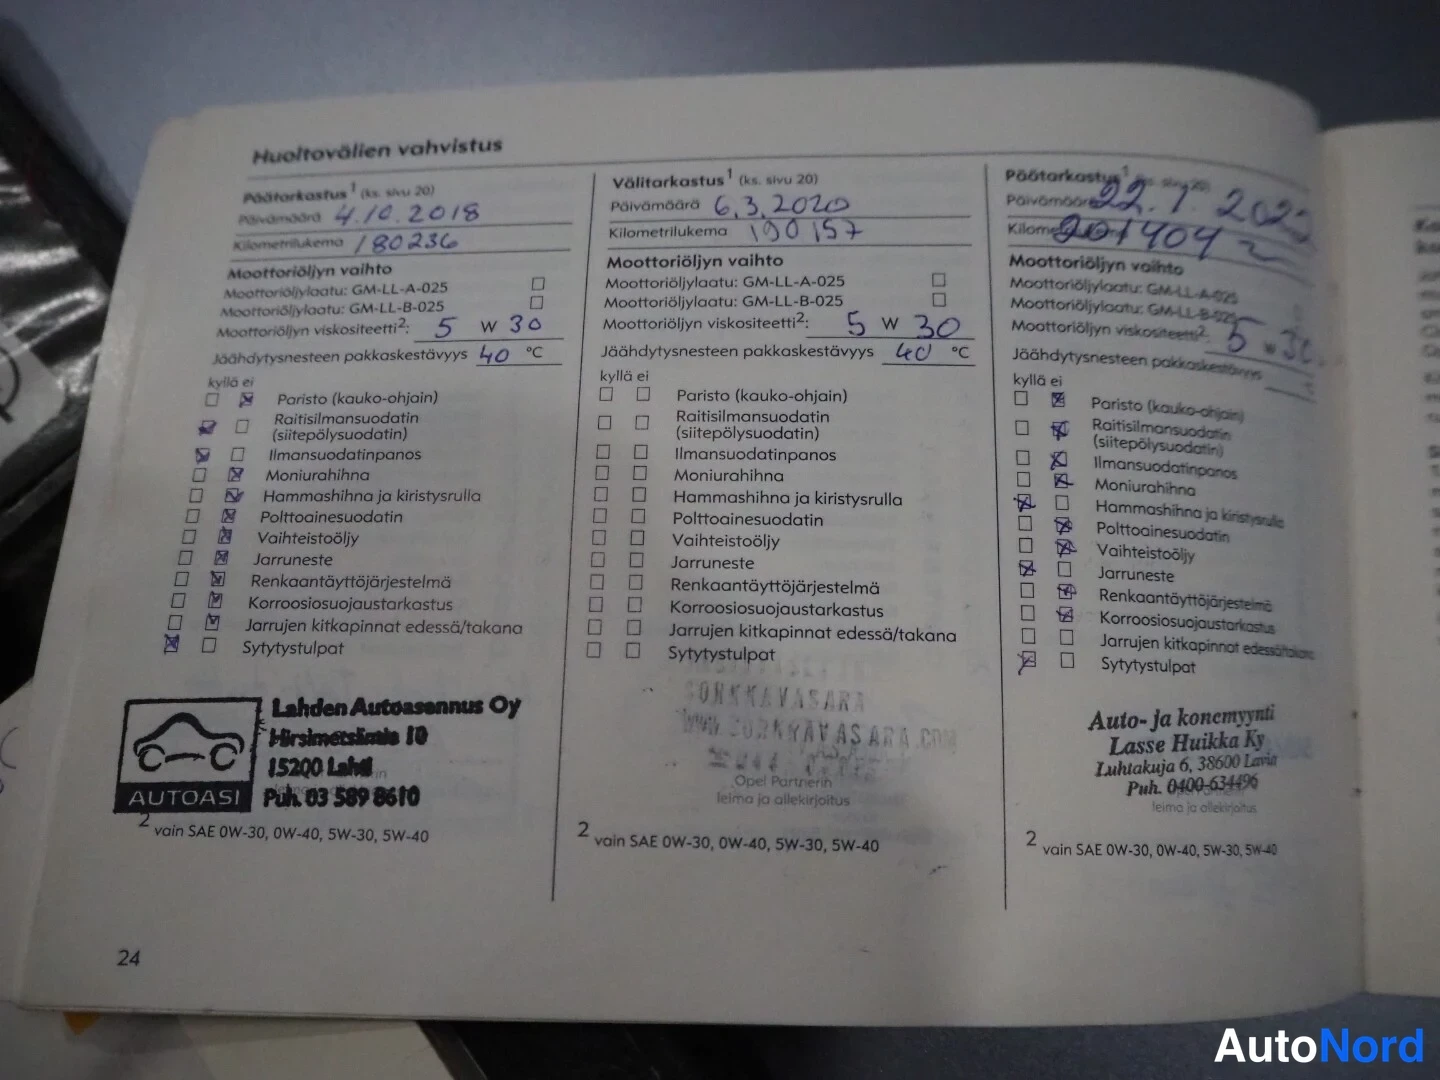 Huoltovälien vahvistus
Päätarkastus¹ (ks. sivu 20)
Päivämäärä 4.10.2018
Kilometrilukema 180236
Moottoriöljyn vaihto
Moottoriöljylaatu: GM-LL-A-025
Moottoriöljylaatu: GM-LL-B-025
Moottoriöljyn viskositeetti²: 5 W 30
Jäähdytysnesteen pakkaskestävyys 40 °C
kyllä ei
Paristo (kauko-ohjain)
Raitisilmansuodatin
(siitepölysuodatin)
Ilmansuodatinpanos
Moniurahihna
Hammashihna ja kiristysrulla
Polttoainesuodatin
Vaihteistoöljy
Jarruneste
Renkaantäyttöjärjestelmä
Korroosiosuojaustarkastus
Jarrujen kitkapinnat edessä/takana
Sytytystulpat
AUTOASI
Lahden Autoasennus Oy
Hirsimetsäntie 10
15200 Lahti
Puh. 03 589 8610
2 vain SAE 0W-30, 0W-40, 5W-30, 5W-40
24
Välitarkastus¹ (ks. sivu 20)
Päivämäärä 6.3.2020
Kilometrilukema 190157
Moottoriöljyn vaihto
Moottoriöljylaatu: GM-LL-A-025
Moottoriöljylaatu: GM-LL-B-025
Moottoriöljyn viskositeetti²: 5 W 30
Jäähdytysnesteen pakkaskestävyys 40 °C
kyllä ei
Paristo (kauko-ohjain)
Raitisilmansuodatin
(siitepölysuodatin)
Ilmansuodatinpanos
Moniurahihna
Hammashihna ja kiristysrulla
Polttoainesuodatin
Vaihteistoöljy
Jarruneste
Renkaantäyttöjärjestelmä
Korroosiosuojaustarkastus
Jarrujen kitkapinnat edessä/takana
Sytytystulpat
SORKKAVASARA
WWW.SORKKAVASARA.COM
Opel Partnerin
leima ja allekirjoitus
2 vain SAE 0W-30, 0W-40, 5W-30, 5W-40
Päätarkastus¹ (ks. sivu 20)
Päivämäärä 22.1.2022
201404
Moottoriöljyn vaihto
Moottoriöljylaatu: GM-LL-A-025
Moottoriöljylaatu: GM-LL-B-025
Moottoriöljyn viskositeetti²: 5 W 30
Jäähdytysnesteen pakkaskestävyys
kyllä ei
Paristo (kauko-ohjain)
Raitisilmansuodatin
(siitepölysuodatin)
Ilmansuodatinpanos
Moniurahihna
Hammashihna ja kiristysrulla
Polttoainesuodatin
Vaihteistoöljy
Jarruneste
Renkaantäyttöjärjestelmä
Korroosiosuojaustarkastus
Jarrujen kitkapinnat edessä/takana
Sytytystulpat
Auto- ja konemyynti
Lasse Huikka Ky
Luhtakuja 6, 38600 Lavia
Puh. 0400-634496
leima ja allekirjoitus
2 vain SAE 0W-30, 0W-40, 5W-30, 5W-40
AutoNord